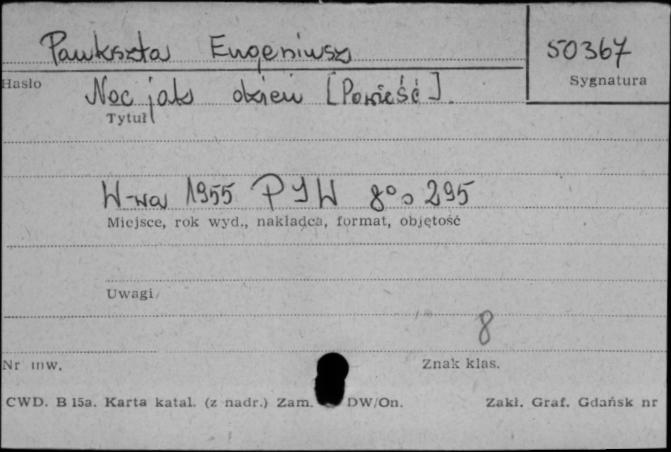 Paukszta Eugeniusz
50367
Hasło
Sygnatura
Noc jak dzień [Powieść].
Tytuł
W-wa 1955 PIW 8° s 295
Miejsce, rok wyd., nakładca, format, objętość
Uwagi
8
Nr inw.
Znak klas.
CWD. B 15a. Karta katal. (z nadr.) Zam. DW/On.
Zakł. Graf. Gdańsk nr